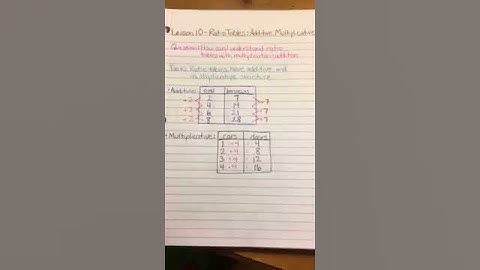 Lesson 10 - Ratio Tables: Additive Multiplicative
Question: How can I understand ratio
tables with multiplication/addition
Focus: Ratio tables have additive and
multiplicative structure
Additive:
2 7
+2 4 14 +7
+2 6 21 +7
+2 8 28 +7
Multiplicative: cars doors
1 ×4 = 4
2 ×4 = 8
3 ×4 = 12
4 ×4 = 16